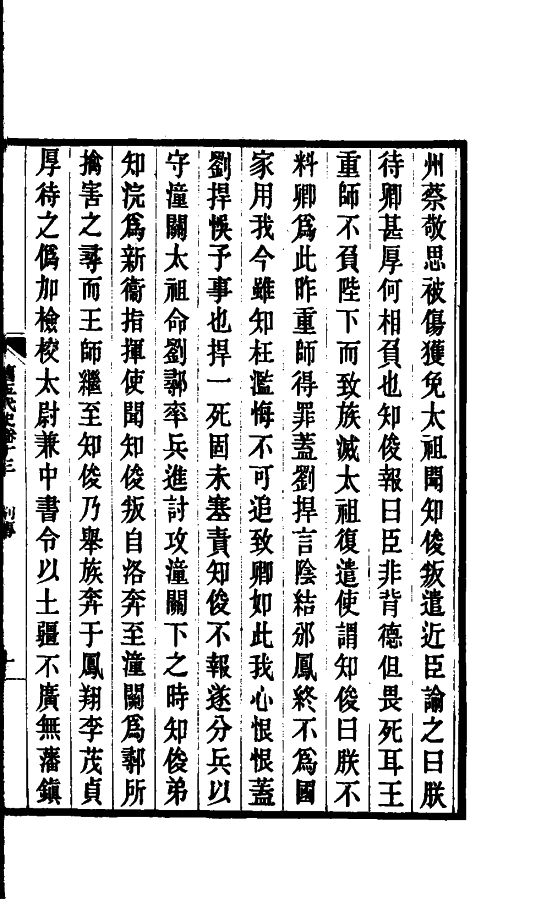 州蔡敬思被傷獲免太祖聞知俊叛遣近臣諭之曰朕
待卿甚厚何相負也知俊報曰臣非背德但畏死耳王
重師不負陛下而致族滅太祖復遣使謂知俊曰朕不
料卿爲此昨重師得罪蓋劉捍言陰結邠鳳終不爲國
家用我今雖知枉濫悔不可追致卿如此我心恨恨蓋
劉捍悞予事也捍一死固未塞責知俊不報遂分兵以
守潼關太祖命劉鄩率兵進討攻潼關下之時知俊弟
知浣爲新衞指揮使聞知俊叛自洛奔至潼關爲鄩所
擒害之尋而王師繼至知俊乃舉族奔于鳳翔李茂貞
厚待之僞加檢校太尉兼中書令以土疆不廣無藩鎮
五代史卷十三 列傳